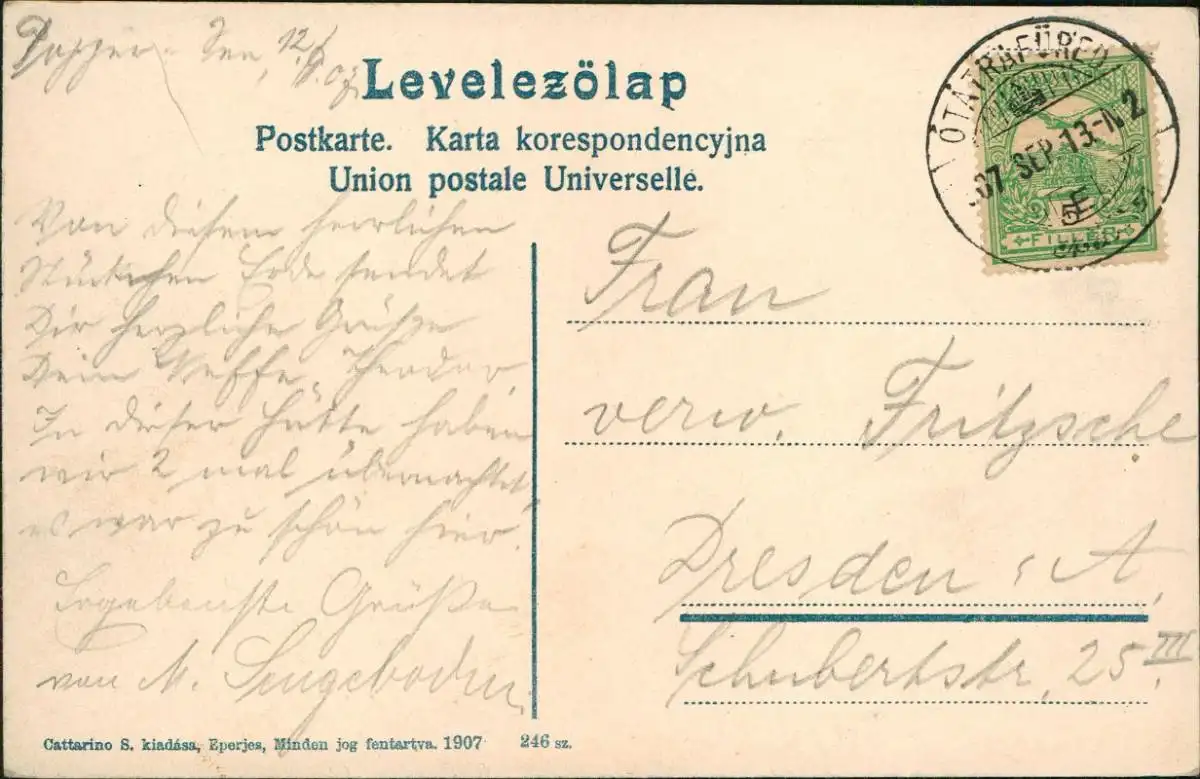 Popper-See, 12/9.07
Levelezőlap
Postkarte. Karta korespondencyjna
Union postale Universelle.
ÓTÁTRAFÜRED
907 SEP. 13-N. 2
5
FILLÉR
Von diesem herrlichen
Stückchen Erde sendet
Dir herzliche Grüße
Dein Neffe Theodor.
In dieser Hütte haben
wir 2 mal übernachtet,
es war zu schön hier.
Ergebenste Grüße
von M.
Frau
verw. Fritzsche
Dresden-A.
Schubertstr. 25 III.
Cattarino S. kiadása, Eperjes, Minden jog fentartva. 1907 246 sz.